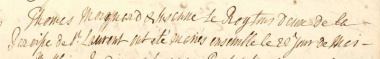 Thomas Maquard & Jeanne le Roy tous deux de la
Paroisse de St Laurent ont été mariés ensemble le 22 Jour de